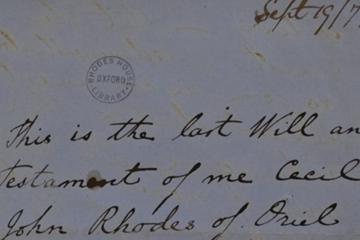 Sept 19/7
RHODES HOUSE
OXFORD
LIBRARY
This is the last Will an
Testament of me Cecil
John Rhodes of Oriel